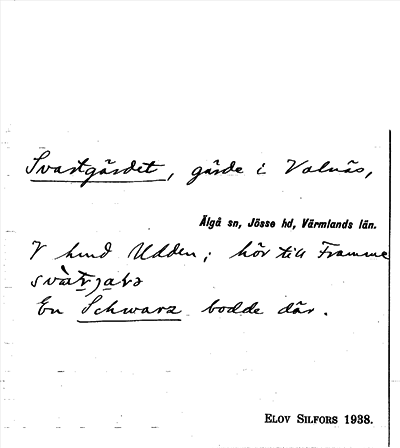 Svartgärdet, gärde i Valnäs,
Älgå sn, Jösse hd, Värmlands län.
V hund Udden; hör till Framme
En Schwarz bodde där.
ELOV SILFORS 1938.